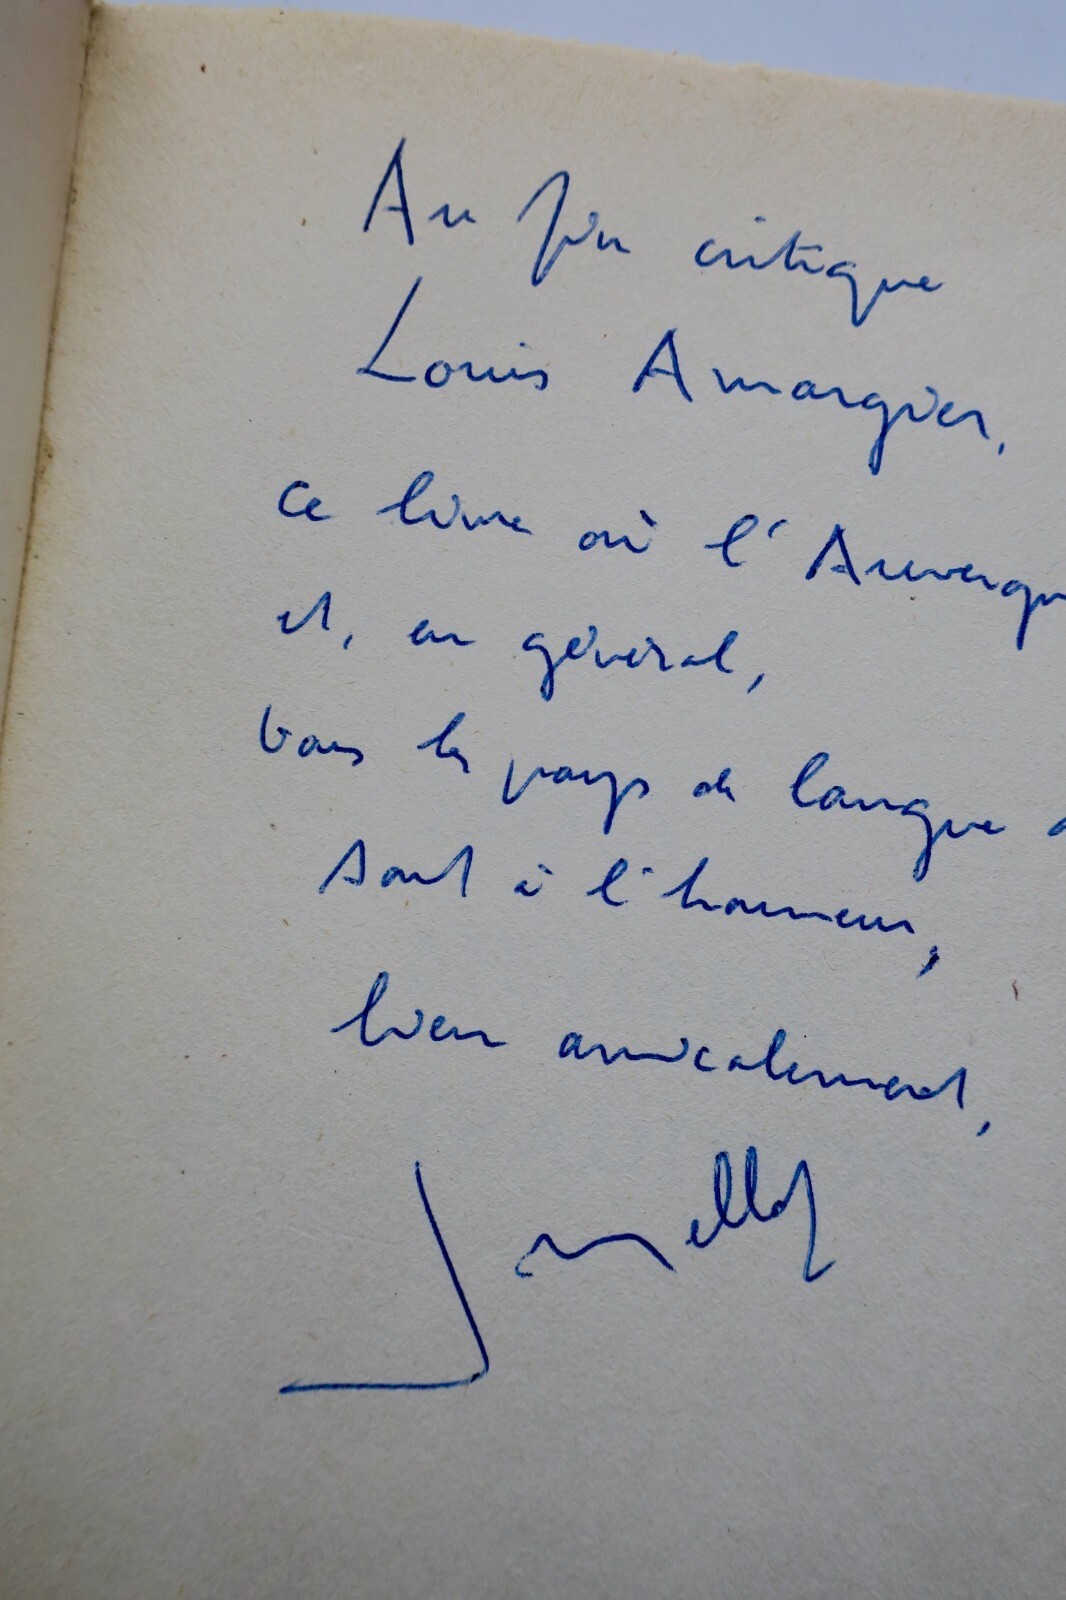 Au fin critique
Louis Amargier,
ce livre où l'Auvergn
et, en général,
tous les pays de langue
sont à l'honneur,
bien amicalement,